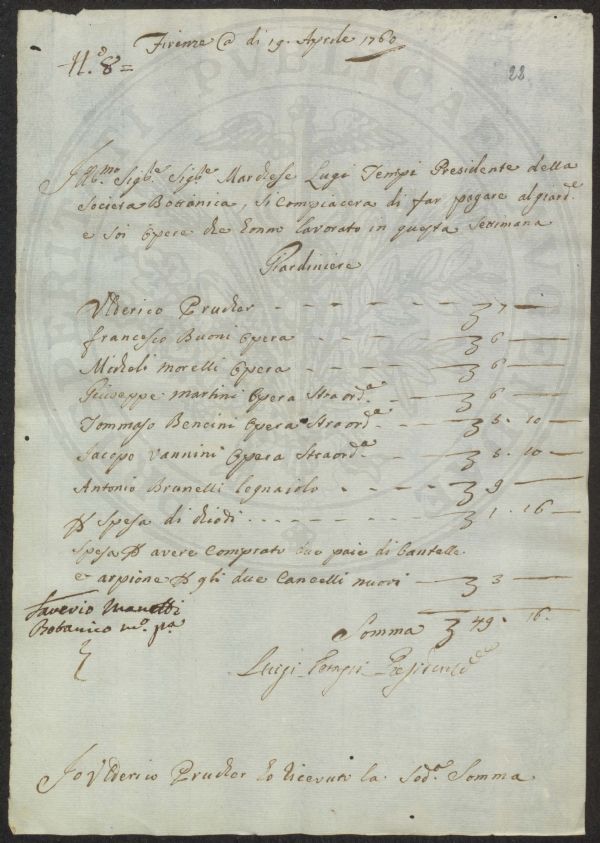 Firenze @ di 19. Aprile 1760
N.° 8=
22
Ill.mo Sig.re Sig.re Marchese Luigi Tempi Presidente della
Societa Bottanica, Si Compiacera di far pagare al giard.e
e Soi Opere che hanno lavorato in questa Settimana
Giardiniere
Ulderico Prucher - - - - - - - - 7 —
Francesco Buoni Opera - - - - - 6 —
Micheli Morelli Opera - - - - - 6 —
Giuseppe Martini Opera Straord.e - - 6 —
Tommaso Bencini Opera Straord.e - - 5 . 10 —
Jacopo Vannini Opera Straord.e - - 5 . 10 —
Antonio Brunelli legnaiolo - - - - 9 —
p Spesa di chiodi - - - - - - - 1 . 16 —
Spesa p avere Comprato due paia di bantelle
e arpione p gli due Cancelli nuovi — 3 —
Saverio Manetti
Botanico m.o pa
Somma 49 . 16.
Luigi Tempi Presidente
Io Ulderico Prucher ho ricevuto la Sod.a Somma